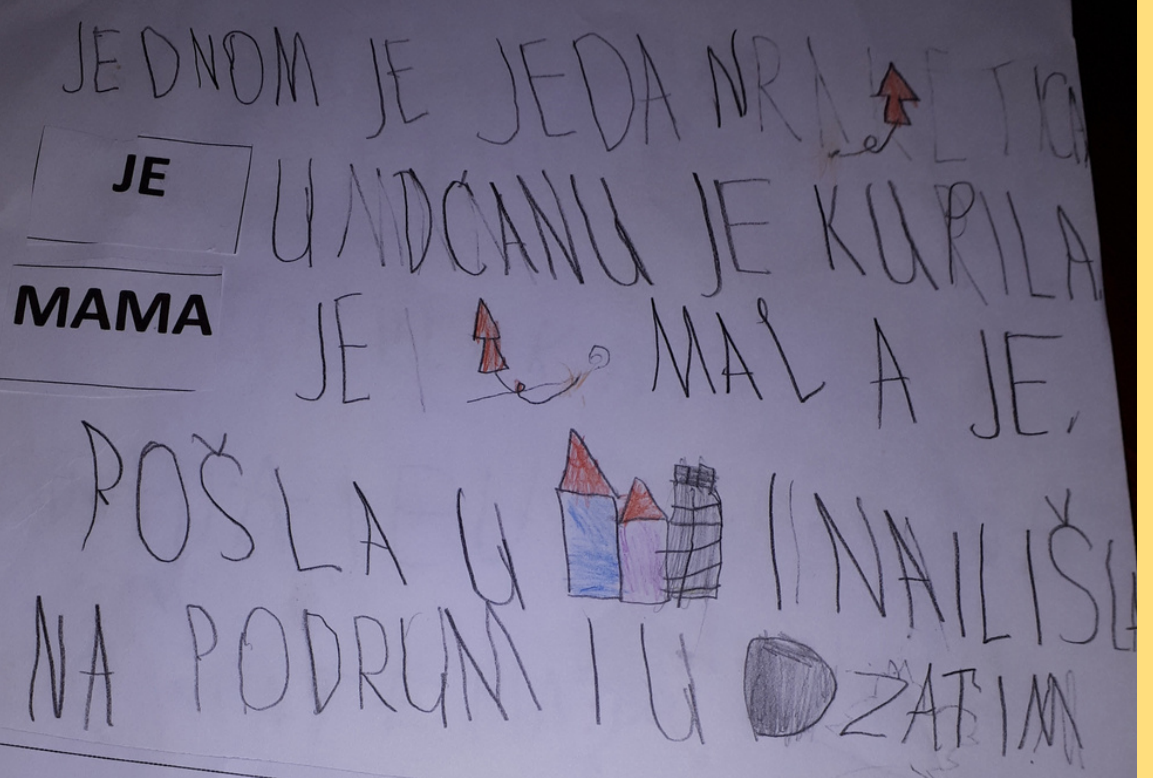 JEDNOM JE JEDA NRAKETICA
JE U NDĆANU JE KUPILA
MAMA JE MALA JE.
POŠLA U I NAILIŠLA
NA PODRUM I U ZATIM